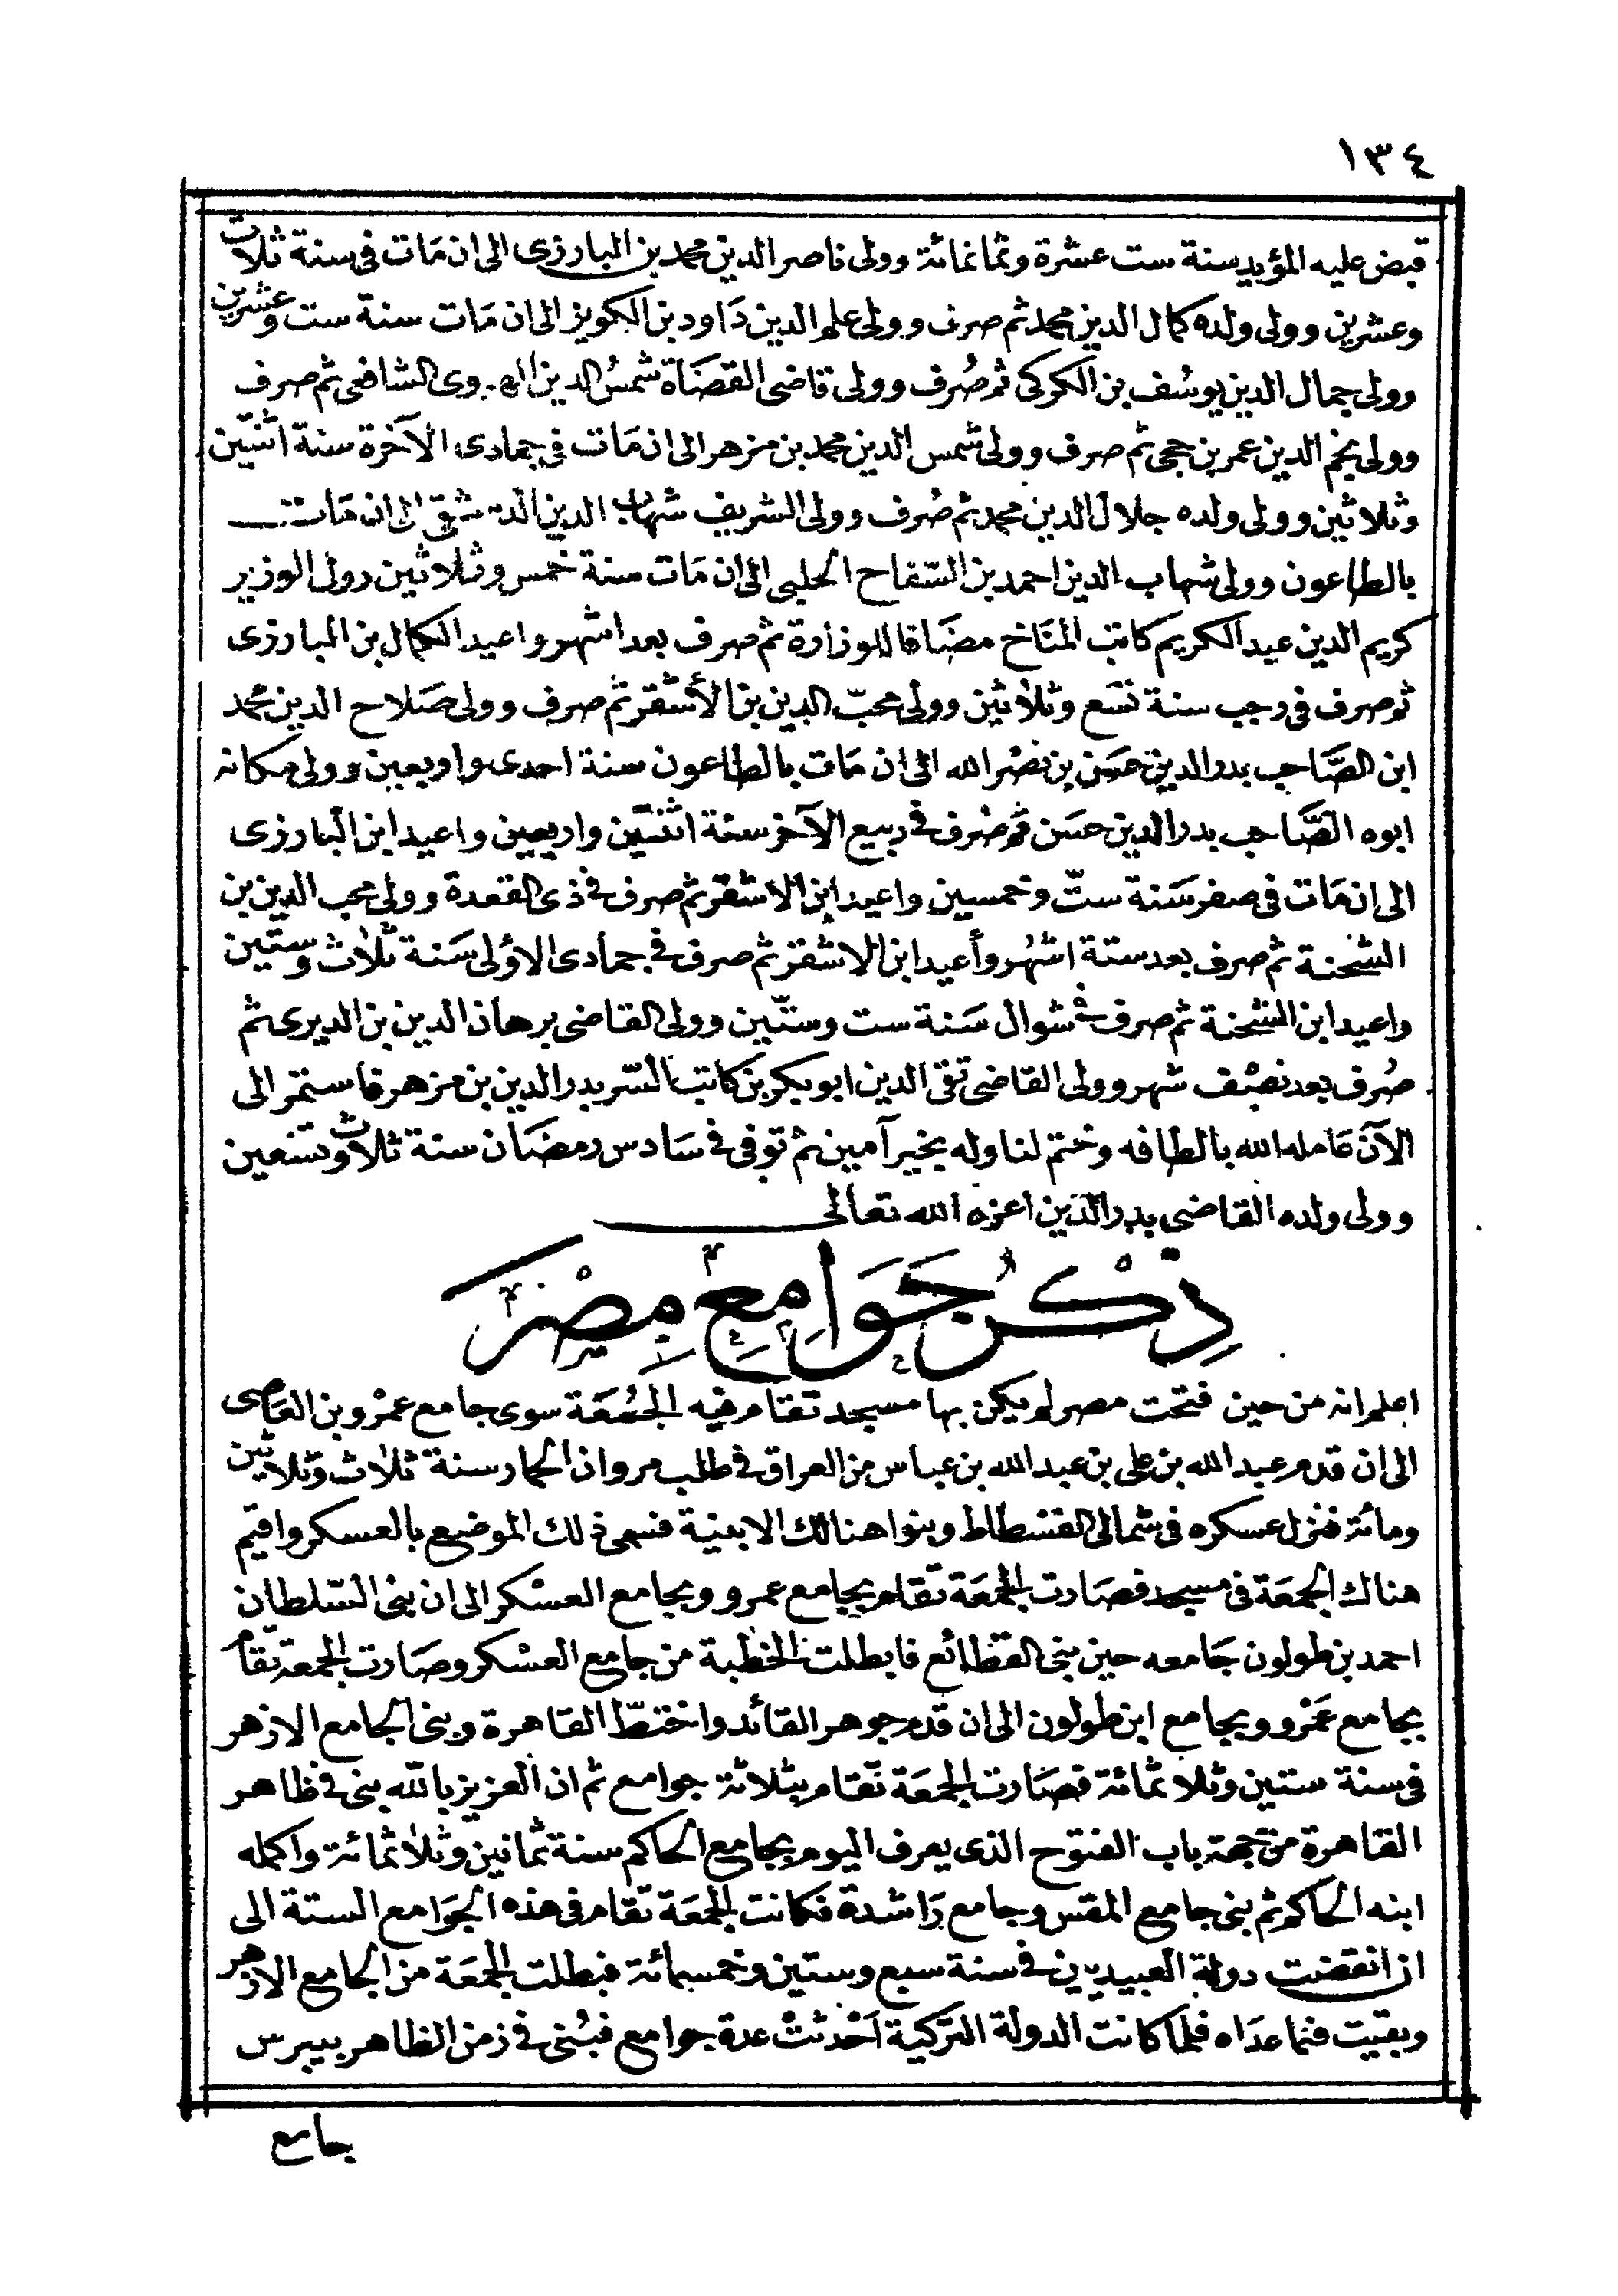 ١٣٤
قبض عليه المؤيد سنة ست عشرة وثمانمائة وولى ناصر الدين محمد بن البارزى الى ان مات فى سنة ثلاث
وعشرين وولى ولده كمال الدين محمد ثم صرف وولى علم الدين داود بن الكويز الى ان مات سنة ست وعشرين
وولى جمال الدين يوسف بن الكركى ثم صُرف وولى قاضى القضاة شمسُ الدين الهروى الشافعى ثم صرف
وولى نجم الدين عمر بن حجى ثم صرف وولى شمس الدين محمد بن مزهر الى ان مات فى جمادى الآخرة سنة اثنتين
وثلاثين وولى ولده جلال الدين محمد ثم صُرف وولى الشريف شهاب الدين الدمشقى الى ان مات
بالطاعون وولى شهاب الدين احمد بن السّفاح الحلبى الى ان مات سنة خمس وثلاثين وولى الوزير
كريم الدين عبد الكريم كاتب المناخ مضافا للوزارة ثم صرف بعد اشهر واعيد الكمال بن البارزى
ثم صرف فى رجب سنة تسع وثلاثين وولى محبّ الدين بن الأشقر ثم صرف وولى صلاح الدين محمد
ابن الصّاحب بدر الدين حسن بن نصْر الله الى ان مات بالطاعون سنة احدى واربعين وولى مكانه
ابوه الصّاحب بدر الدين حسن ثم صُرف فى ربيع الآخر سنة اثنتين واربعين واعيد ابن البارزى
الى ان مات فى صفر سنة ستّ وخمسين واعيد ابن الاشقر ثم صرف فى ذى القعدة وولى محب الدين بن
الشحنة ثم صرف بعد ستة اشهُر وأعيد ابن الاشقر ثم صرف فى جمادى الاولى سنة ثلاث وستين
واعيد ابن الشحنة ثم صرف فى شوال سنة ست وستّين وولى القاضى برهان الدين بن الديرى ثم
صُرف بعد نصْف شهر وولى القاضى تقى الدين ابو بكر بن كاتب السّر بدر الدين بن مزهر فاستمر الى
الآن عامله الله بالطافه وختم لنا وله بخير آمين ثم توفى فى سادس رمضان سنة ثلاث وتسعين
وولى ولده القاضى بدر الدين اعزه الله تعالى
ذِكْرُ جَوَامِعِ مِصْرَ
اعلم انه من حين فتحت مصر لم يكن بها مسجد تقام فيه الجُمُعَة سوى جامع عمْرو بن العاصى
الى ان قدم عبد الله بن على بن عبد الله بن عباس من العراق فى طلب مروان الحمار سنة ثلاث وثلاثين
ومائة فنزل عسكره فى شمالى الفسطاط وبنوا هنالك الابنية فسمى ذلك الموضع بالعسكر واقيم
هناك الجمعَة فى مسجد فصارت الجمعَة تقام بجامع عمرو وبجامع العسْكر الى ان بنى السّلطان
احمد بن طولون جامعه حين بنى القطائع فابطلت الخطبة من جامع العسْكر وصارت الجمعة تقام
بجامع عَمْرو وبجامع ابن طولون الى ان قدم جوهر القائد واختطّ القاهرة وبنى الجامع الازهر
فى سنة ستين وثلاثمائة فصارت الجمعَة تقام بثلاثة جوامع ثم ان العزيز بالله بنى فى ظاهر
القاهرة من جهة باب الفتوح الذى يعرف اليوم بجامع الحاكم سنة ثمانين وثلاثمائة واكمله
ابنه الحاكم ثم بنى جامع المقس وجامع راشدة فكانت الجمعَة تقام فى هذه الجوامع الستة الى
ان انقضت دولة العبيديين فى سنة سبع وستين وخمسمائة فبطلت الجمعَة من الجامع الازهر
وبقيت فيما عداه فلما كانت الدولة التركية اُحْدثتْ عدة جوامع فبُنى فى زمن الظاهر بيبرس
جامع